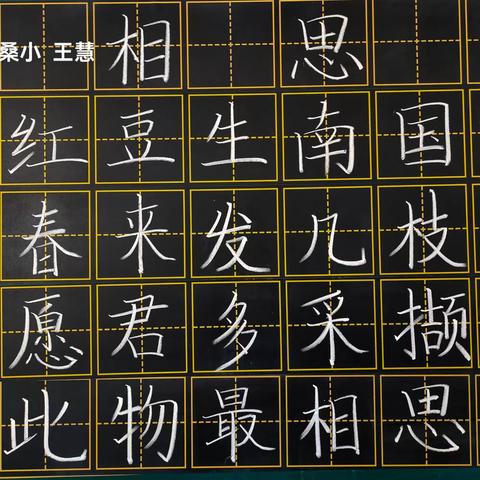 桑小 王慧
相思
红豆生南国
春来发几枝
愿君多采撷
此物最相思